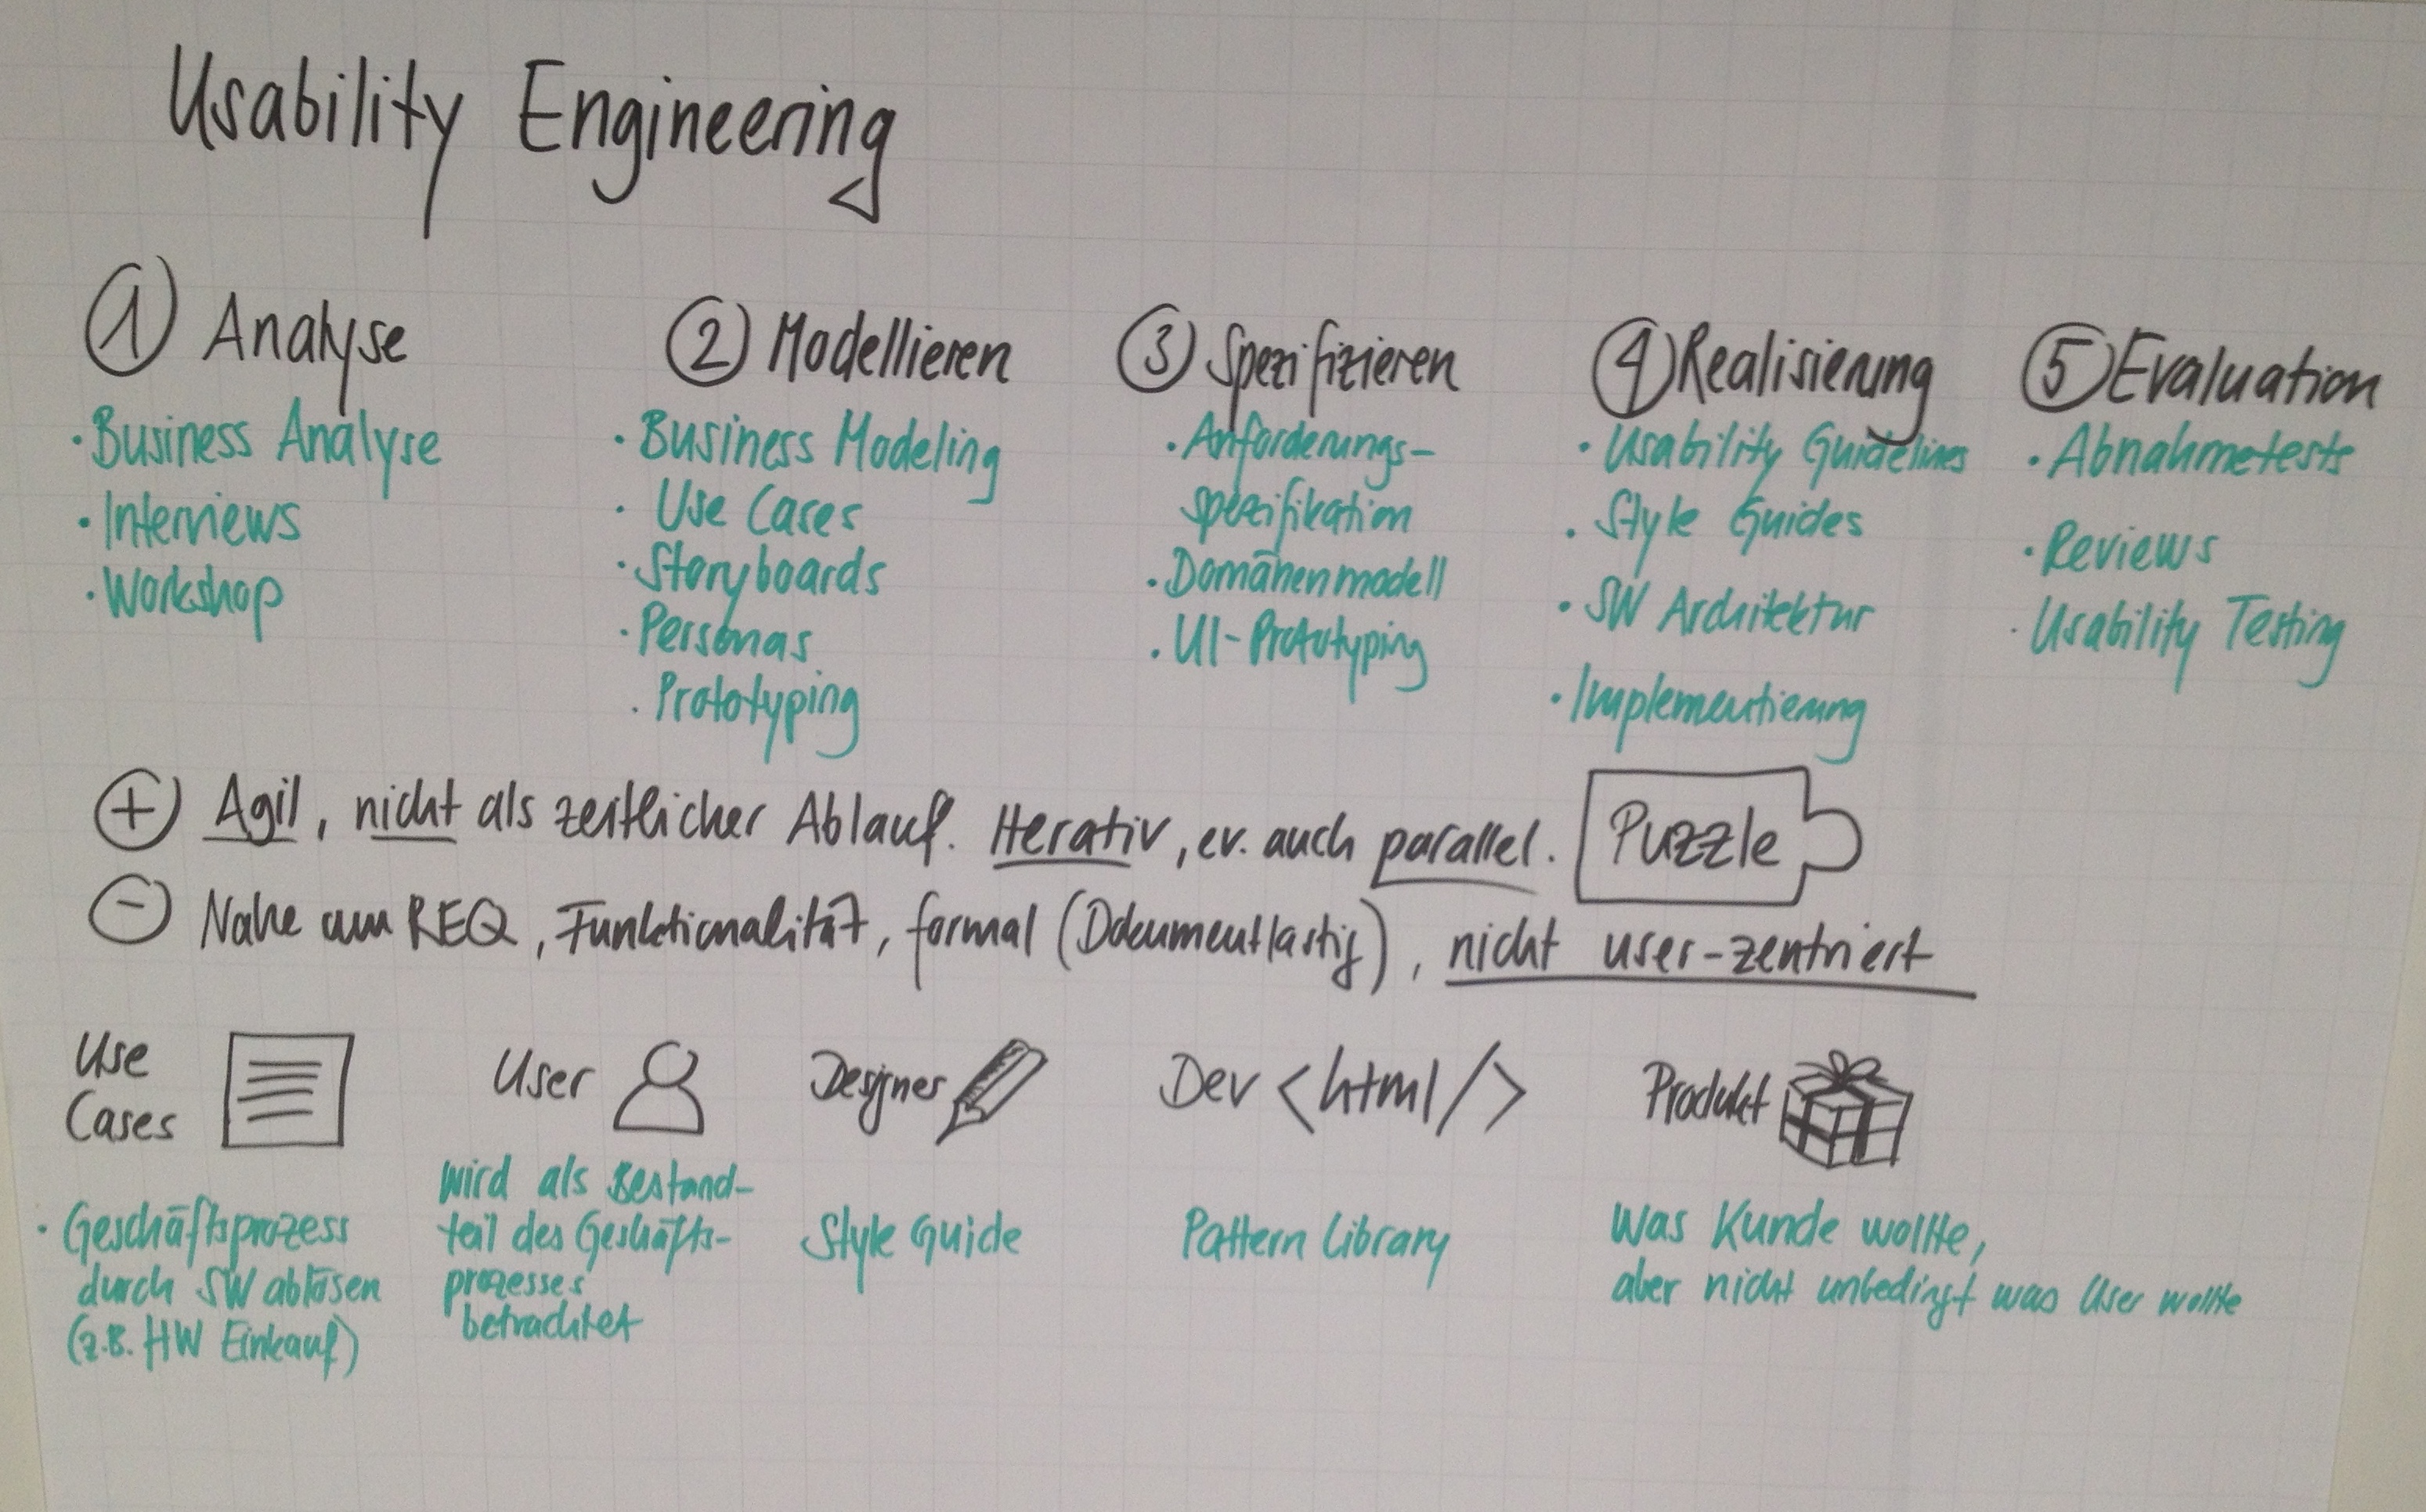 Usability Engineering
① Analyse
· Business Analyse
· Interviews
· Workshop
② Modellieren
· Business Modeling
· Use Cases
· Storyboards
· Personas
· Prototyping
③ Spezifizieren
· Anforderungs-
spezifikation
· Domänenmodell
· UI-Prototyping
④ Realisierung
· Usability Guidelines
· Style Guides
· SW Architektur
· Implementierung
⑤ Evaluation
· Abnahmetests
· Reviews
· Usability Testing
⊕ Agil, nicht als zeitlicher Ablauf. Iterativ, ev. auch parallel. Puzzle
⊖ Nahe am REQ, Funktionalität, formal (Dokumentlastig), nicht user-zentriert
Use
Cases
· Geschäftsprozess
durch SW ablösen
(z.B. HW Einkauf)
User
wird als Bestand-
teil des Geschäfts-
prozesses
betrachtet
Designer
Style Guide
Dev <html/>
Pattern Library
Produkt
Was Kunde wollte,
aber nicht unbedingt was User wollte